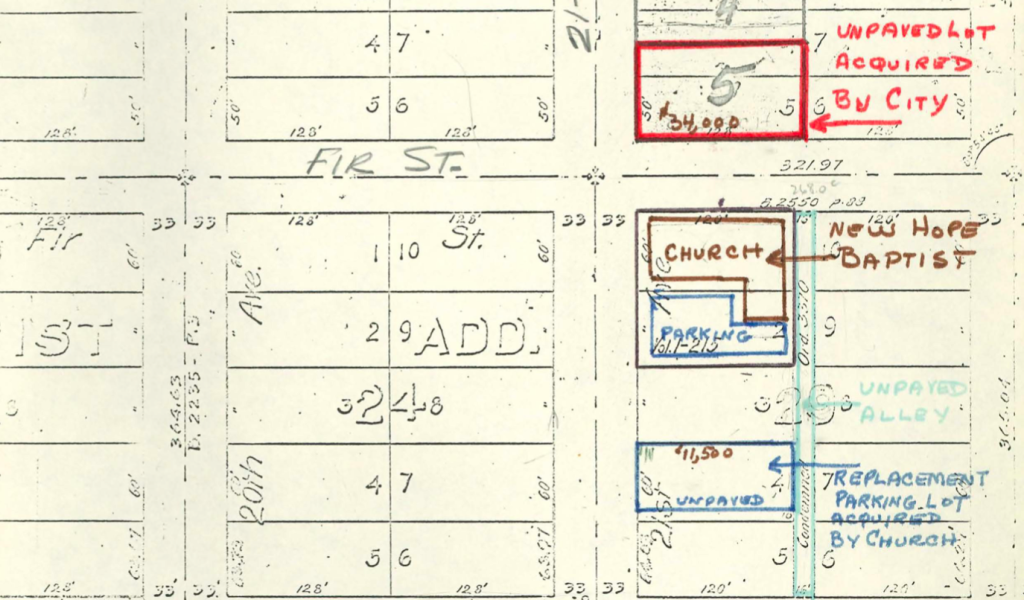 4 7
4
21-
7
UNPAVED LOT
ACQUIRED
BY CITY
50'
5 6
50'
128'
128'
128'
50'
5
50'
5 6
50'
$34,000
128'
128'
FIR ST.
321.97
268.0
B.2550 P.83
128'
33 33
128'
128'
33 33
120'
15'
120'
33
Fir
St.
1 10
60'
60
60'
CHURCH
NEW HOPE
BAPTIST
Ave.
1ST
2 9
ADD.
PARKING
Vol.1-215
2 9
Ord. 3370
364.63
D. 2235 - P.3
3 24 8
3 28 8
UNPAVED
ALLEY
364.04
60'
20th
4 7
60'
$11,500
60'
UNPAVED
4 7
60'
REPLACEMENT
PARKING LOT
ACQUIRED
BY CHURCH
21st
5 6
5 6
128'
33' 33'
128'
128'
33' 33'
120'
16'
120'
33'